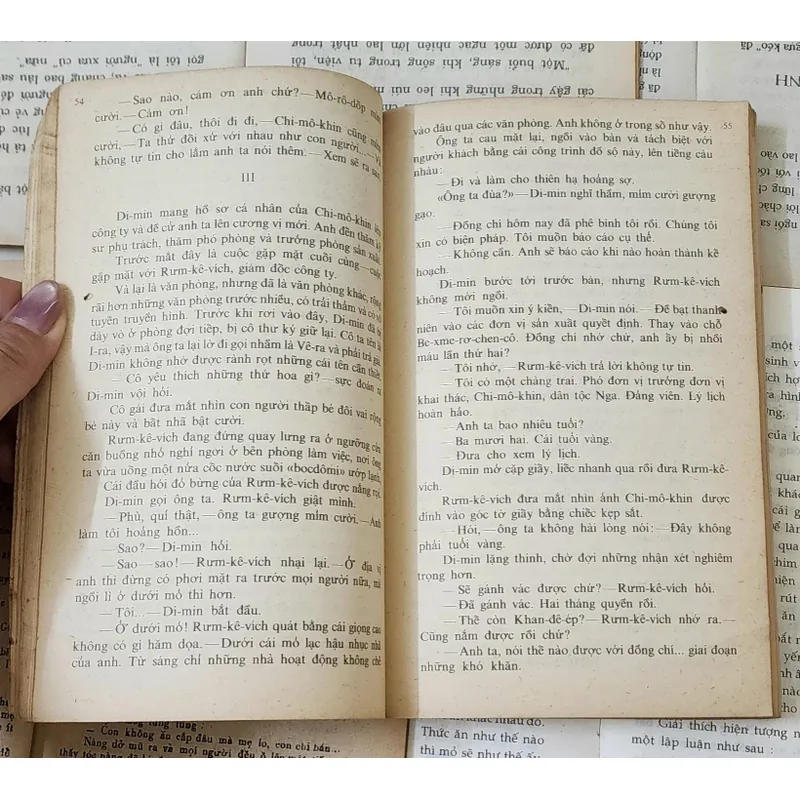 54
—Sao nào, cám ơn anh chứ?—Mô-rô-dôp mỉm
cười.—Cám ơn!
—Có gì đâu, thôi đi đi,—Chi-mô-khin cũng mỉm
cười,—Ta thử đối xử với nhau như con người...—
không tự tin cho lắm anh ta nói thêm.—Xem sẽ ra sao.
III
Di-min mang hồ sơ cá nhân của Chi-mô-khin lên
công ty và đề cử anh ta lên cương vị mới. Anh đến thăm kỹ
sư phụ trách, thăm phó phòng và trưởng phòng sản xuất.
Trước mắt đây là cuộc gặp mặt cuối cùng—cuộc
gặp mặt với Rưm-kê-vích, giám đốc công ty.
Và lại là văn phòng, nhưng đã là văn phòng khác, rộng
rãi hơn những văn phòng trước nhiều, có trải thảm và có vô
tuyến truyền hình. Trước khi rơi vào đây, Di-min đã bị
dày vò ở phòng đợi tiếp, bị cô thư ký giữ lại. Cô ta tên là
I-ra, vậy mà ông ta lại lỡ đi gọi nhầm là Vê-ra và phải trả giá.
Di-min không nhớ được rành rọt những cái tên cần thiết.
—Cô yêu thích những thứ hoa gì?—sực đoán ra
Di-min vội hỏi.
Cô gái đưa mắt nhìn con người thấp bé đôi vai rộng
bé này và bất nhã bật cười.
Rưm-kê-vích đang đứng quay lưng ra ở ngưỡng cửa
căn buồng nhỏ nghỉ ngơi ở bên phòng làm việc, nơi ông
ta vừa uống một nửa cốc nước suối «bocdômi» ướp lạnh.
Cái đầu hói đỏ bừng của Rưm-kê-vích được nắng rọi.
Di-min gọi ông ta. Rưm-kê-vích giật mình.
—Phù, quí thật,—ông ta gượng mỉm cười.—Anh
làm tôi hoảng hốn...
—Sao?—Di-min hỏi.
—Sao—sao!—Rưm-kê-vích nhại lại.—Ở địa vị
anh thì đừng có phơi mặt ra trước mọi người nữa, mà
ngồi lì ở dưới mỏ thì hơn.
—Tôi..—Di-min bắt đầu.
—Ở dưới mỏ!—Rưm-kê-vích quát bằng cái giọng cao
không có gì hăm dọa.—Dưới cái mỏ lạc hậu nhục nhã
của anh. Từ sáng chí những nhà hoạt động không chê
55
vào đâu qua các văn phòng. Anh không ở trong số như vậy.
Ông ta cau mặt lại, ngồi vào bàn và tách biệt với
người khách bằng cái công trình đồ sộ này, lên tiếng càu
nhàu:
—Đi và làm cho thiên hạ hoảng sợ.
«Ông ta đùa?»—Di-min nghĩ thầm, mỉm cười gượng
gạo.
—Đồng chí hôm nay đã phê bình tôi rồi. Chúng tôi
xin có biện pháp. Tôi muốn báo cáo cụ thể.
—Không cần. Anh sẽ báo cáo khi nào hoàn thành kế
hoạch.
Di-min bước tới trước bàn, nhưng Rưm-kê-vích
không mời ngồi.
—Tôi muốn xin ý kiến,—Di-min nói.—Đề bạt thanh
niên vào các đơn vị sản xuất quyết định. Thay vào chỗ
Be-xme-rơ-chen-cô. Đồng chí nhớ chứ, anh ấy bị nhồi
máu lần thứ hai?
—Tôi nhớ,—Rưm-kê-vích trả lời không tự tin.
—Tôi có một chàng trai. Phó đơn vị trưởng đơn vị
khai thác, Chi-mô-khin, dân tộc Nga. Đảng viên. Lý lịch
hoàn hảo.
—Anh ta bao nhiêu tuổi?
—Ba mươi hai. Cái tuổi vàng.
—Đưa cho xem lý lịch.
Di-min mở cặp giấy, liếc nhanh qua rồi đưa Rưm-kê-
vích.
Rưm-kê-vích đưa mắt nhìn ảnh Chi-mô-khin được
đính vào góc tờ giấy bằng chiếc kẹp sắt.
—Hói,—ông ta không hài lòng nói:—Đây không
phải tuổi vàng.
Di-min lặng thinh, chờ đợi những nhận xét nghiêm
trọng hơn.
—Sẽ gánh vác được chứ?—Rưm-kê-vích hỏi.
—Đã gánh vác. Hai tháng quyền rồi.
—Thế còn Khan-đê-ép?—Rưm-kê-vích nhớ ra.—
Cũng nắm được rồi chứ?
—Anh ta, nói thế nào được với đồng chí... giai đoạn
những khó khăn.
— Con không ăn cắp đâu mà mẹ lo, con chỉ bán...
Thức ăn như thế nào
thì mỏ sẽ như thế ấy
Giải thích hiện tượng
một lập luận như sau :